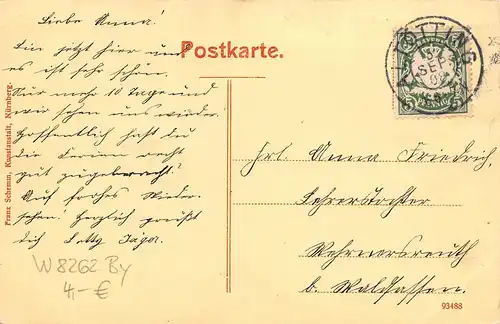 Liebe Anna!
Bin jetzt hier und
es ist sehr schön.
Nur mehr 10 Tage und
wir sehen uns wieder.
Hoffentlich hast du
die Ferien recht
gut zugebracht.
Auf frohes Wieder-
sehen! Herzlich grüßt
dich Betty Jäger.
W 8262 By
4,- €
Postkarte.
ALTÖTTING
SEP
BAYERN
5 PFENNIG 5
Frl. Anna Friedrich,
Lehrerstochter
Wernersreuth
b. Waldsassen.
93488
Franz Schemm, Kunstanstalt, Nürnberg.